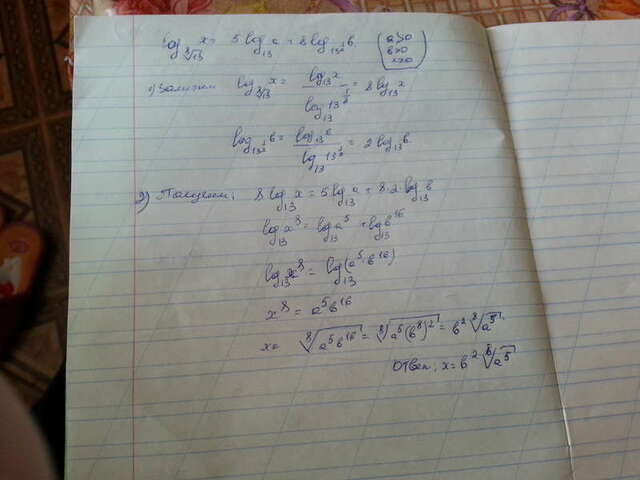 log_{\sqrt[8]{13}} x = 5 log_{13} a + 8 log_{13^{1/2}} b (a>0 b>0 x>0)
1) Запишем log_{\sqrt[8]{13}} x = \frac{log_{13} x}{log_{13} 13^{1/8}} = 8 log_{13} x
log_{13^{1/2}} b = \frac{log_{13} b}{log_{13} 13^{1/2}} = 2 log_{13} b
2) Получаем: 8 log_{13} x = 5 log_{13} a + 8·2 log_{13} b
log_{13} x^8 = log_{13} a^5 + log_{13} b^{16}
log_{13} x^8 = log_{13} (a^5·b^{16})
x^8 = a^5 b^{16}
x = \sqrt[8]{a^5 b^{16}} = \sqrt[8]{a^5 (b^8)^2} = b^2 \sqrt[8]{a^5}.
Ответ: x = b^2 \sqrt[8]{a^5}